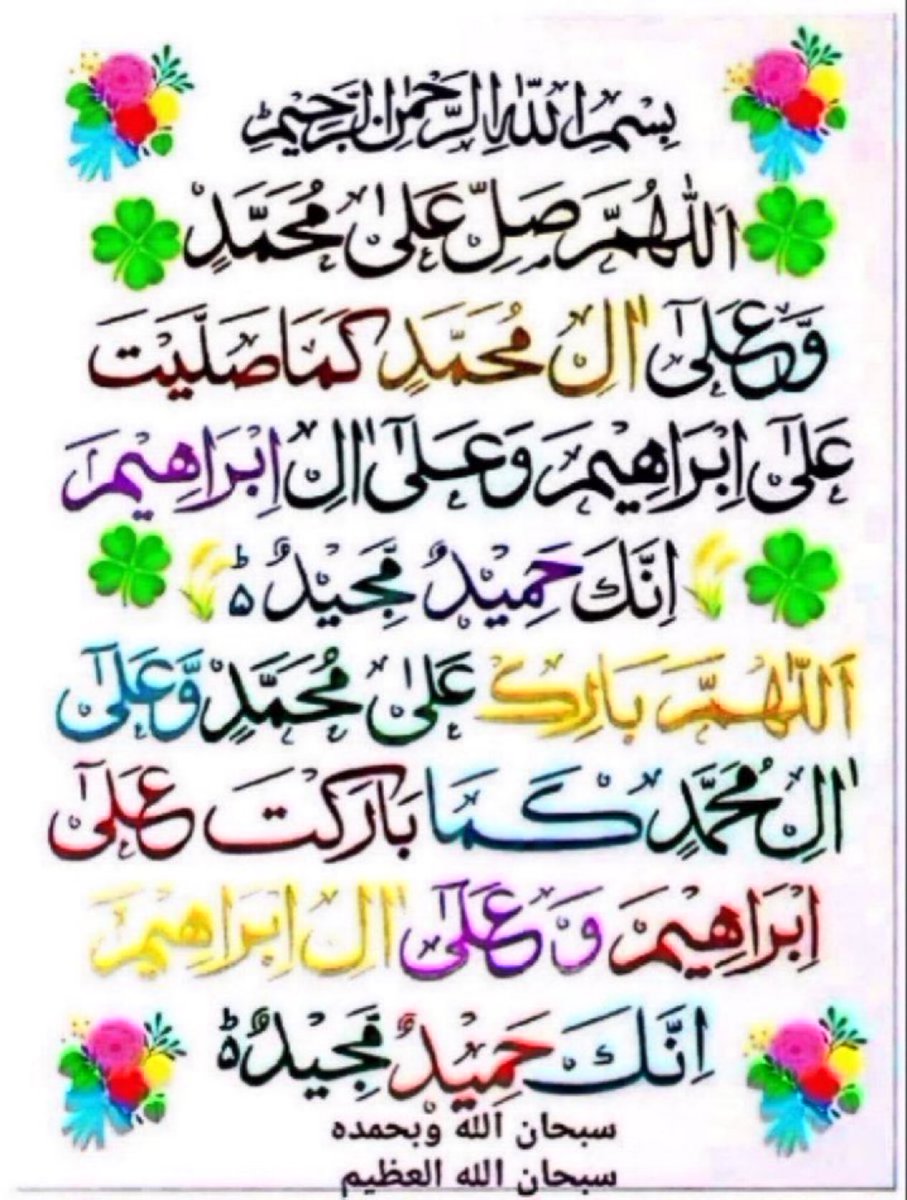 بِسْمِ اللّٰهِ الرَّحْمٰنِ الرَّحِيْمِ
اَللّٰهُمَّ صَلِّ عَلٰی مُحَمَّدٍ
وَّعَلٰۤی اٰلِ مُحَمَّدٍ كَمَا صَلَّيْتَ
عَلٰۤی اِبْرَاهِيْمَ وَعَلٰۤی اٰلِ اِبْرَاهِيْمَ
اِنَّكَ حَمِيْدٌ مَّجِيْدٌ ؕ
اَللّٰهُمَّ بَارِكْ عَلٰی مُحَمَّدٍ وَّعَلٰۤی
اٰلِ مُحَمَّدٍ كَمَا بَارَكْتَ عَلٰۤی
اِبْرَاهِيْمَ وَعَلٰۤی اٰلِ اِبْرَاهِيْمَ
اِنَّكَ حَمِيْدٌ مَّجِيْدٌ ؕ
سبحان الله وبحمده
سبحان الله العظيم